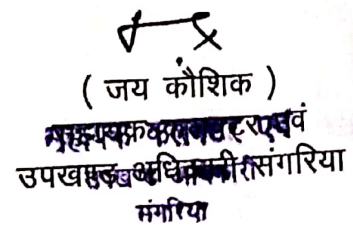 ( जय कौशिक )
सहायक कलक्टर एवं
उपखण्ड अधिकारी संगरिया
संगरिया